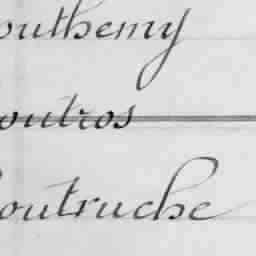 outhemy
outros
outruche